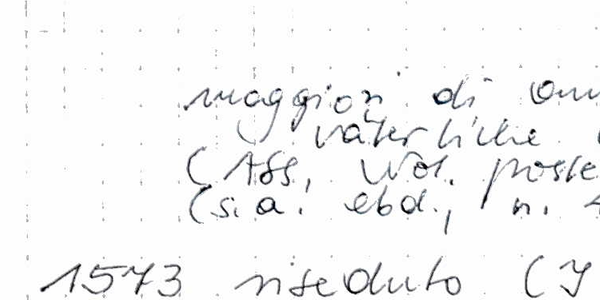 maggiori di
väterliche
(ASS, Not. poste
(s. a. ebd., n. 4
1573 riseduto (